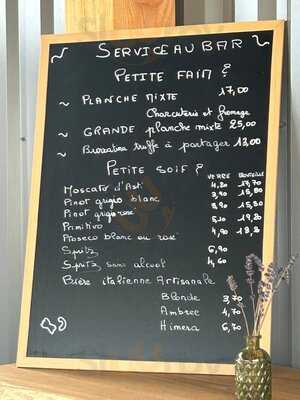 SERVICE AU BAR
PETITE FAIM ?
~ PLANCHE MIXTE 17,00
Charcuterie et fromage
~ GRANDE planche mixte 25,00
~ truffe à partager 13,00
PETITE SOIF ?
VERRE BOUTEILLE
Moscato d'Asti 4,80 17,70
Pinot grigio blanc 3,90 15,80
Pinot grigio rosé 3,90 15,80
Primitivo 5,10 19,20
Proseco blanc ou rosé 4,90 18,8
Spritz 6,90
Spritz sans alcool 4,60
Bière italienne Artisanale
Blonde 3,70
Ambrée 4,70
Himera 6,70